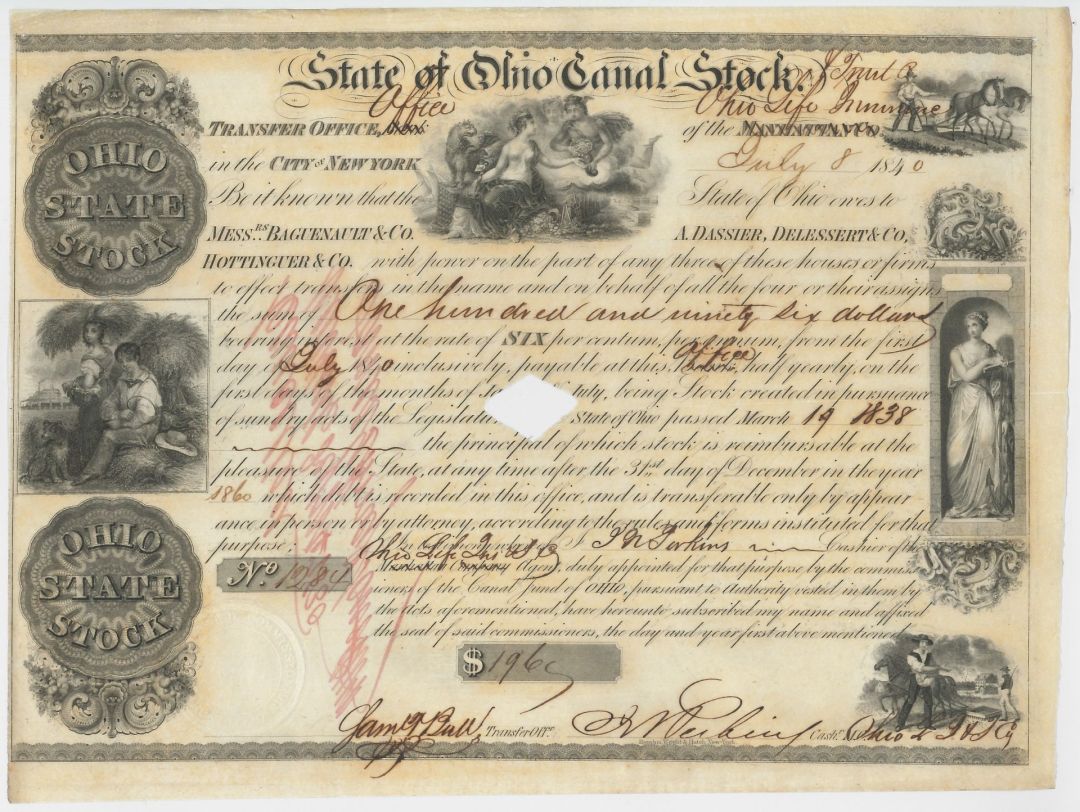 State of Ohio Canal Stock.
& Trust C
Office
Ohio Life Insurance
TRANSFER OFFICE,
of the MANHATTAN CO.
in the CITY OF NEW YORK
July 8 1840
Be it known that the
State of Ohio owes to
MESS.RS BAGUENAULT & CO.
A. DASSIER, DELESSERT & CO,
HOTTINGUER & CO. with power on the part of any three of these houses or firms
to effect transfers in the name and on behalf of all the four or their assigns
the sum of One hundred and ninety six dollars
bearing interest at the rate of SIX per centum, per annum, from the first
day of July 1840 inclusively, payable at this Office half yearly, on the
first days of the months of July, being Stock created in pursuance
of sundry acts of the Legislature State of Ohio passed March 19 1838
the principal of which stock is reimbursable at the
pleasure of the State, at any time after the 31st day of December in the year
1860 which debt is recorded in this office, and is transferable only by appear
ance in person or by attorney, according to the rules and forms instituted for that
purpose:
In testimony whereof I T N Perkins Cashier of the
Ohio Life Ins & T Co
Agent, duly appointed for that purpose by the commiss
No 1984
ioners of the Canal fund of OHIO, pursuant to Authority vested in them by
the Acts aforementioned, have hereunto subscribed my name and affixed
the seal of said commissioners, the day and year first above mentioned
$ 196
Transfer Offr.
Cashr.
Ohio L I & T Co
Rawdon, Wright & Hatch, New-York.
OHIO
STATE
STOCK
OHIO
STATE
STOCK